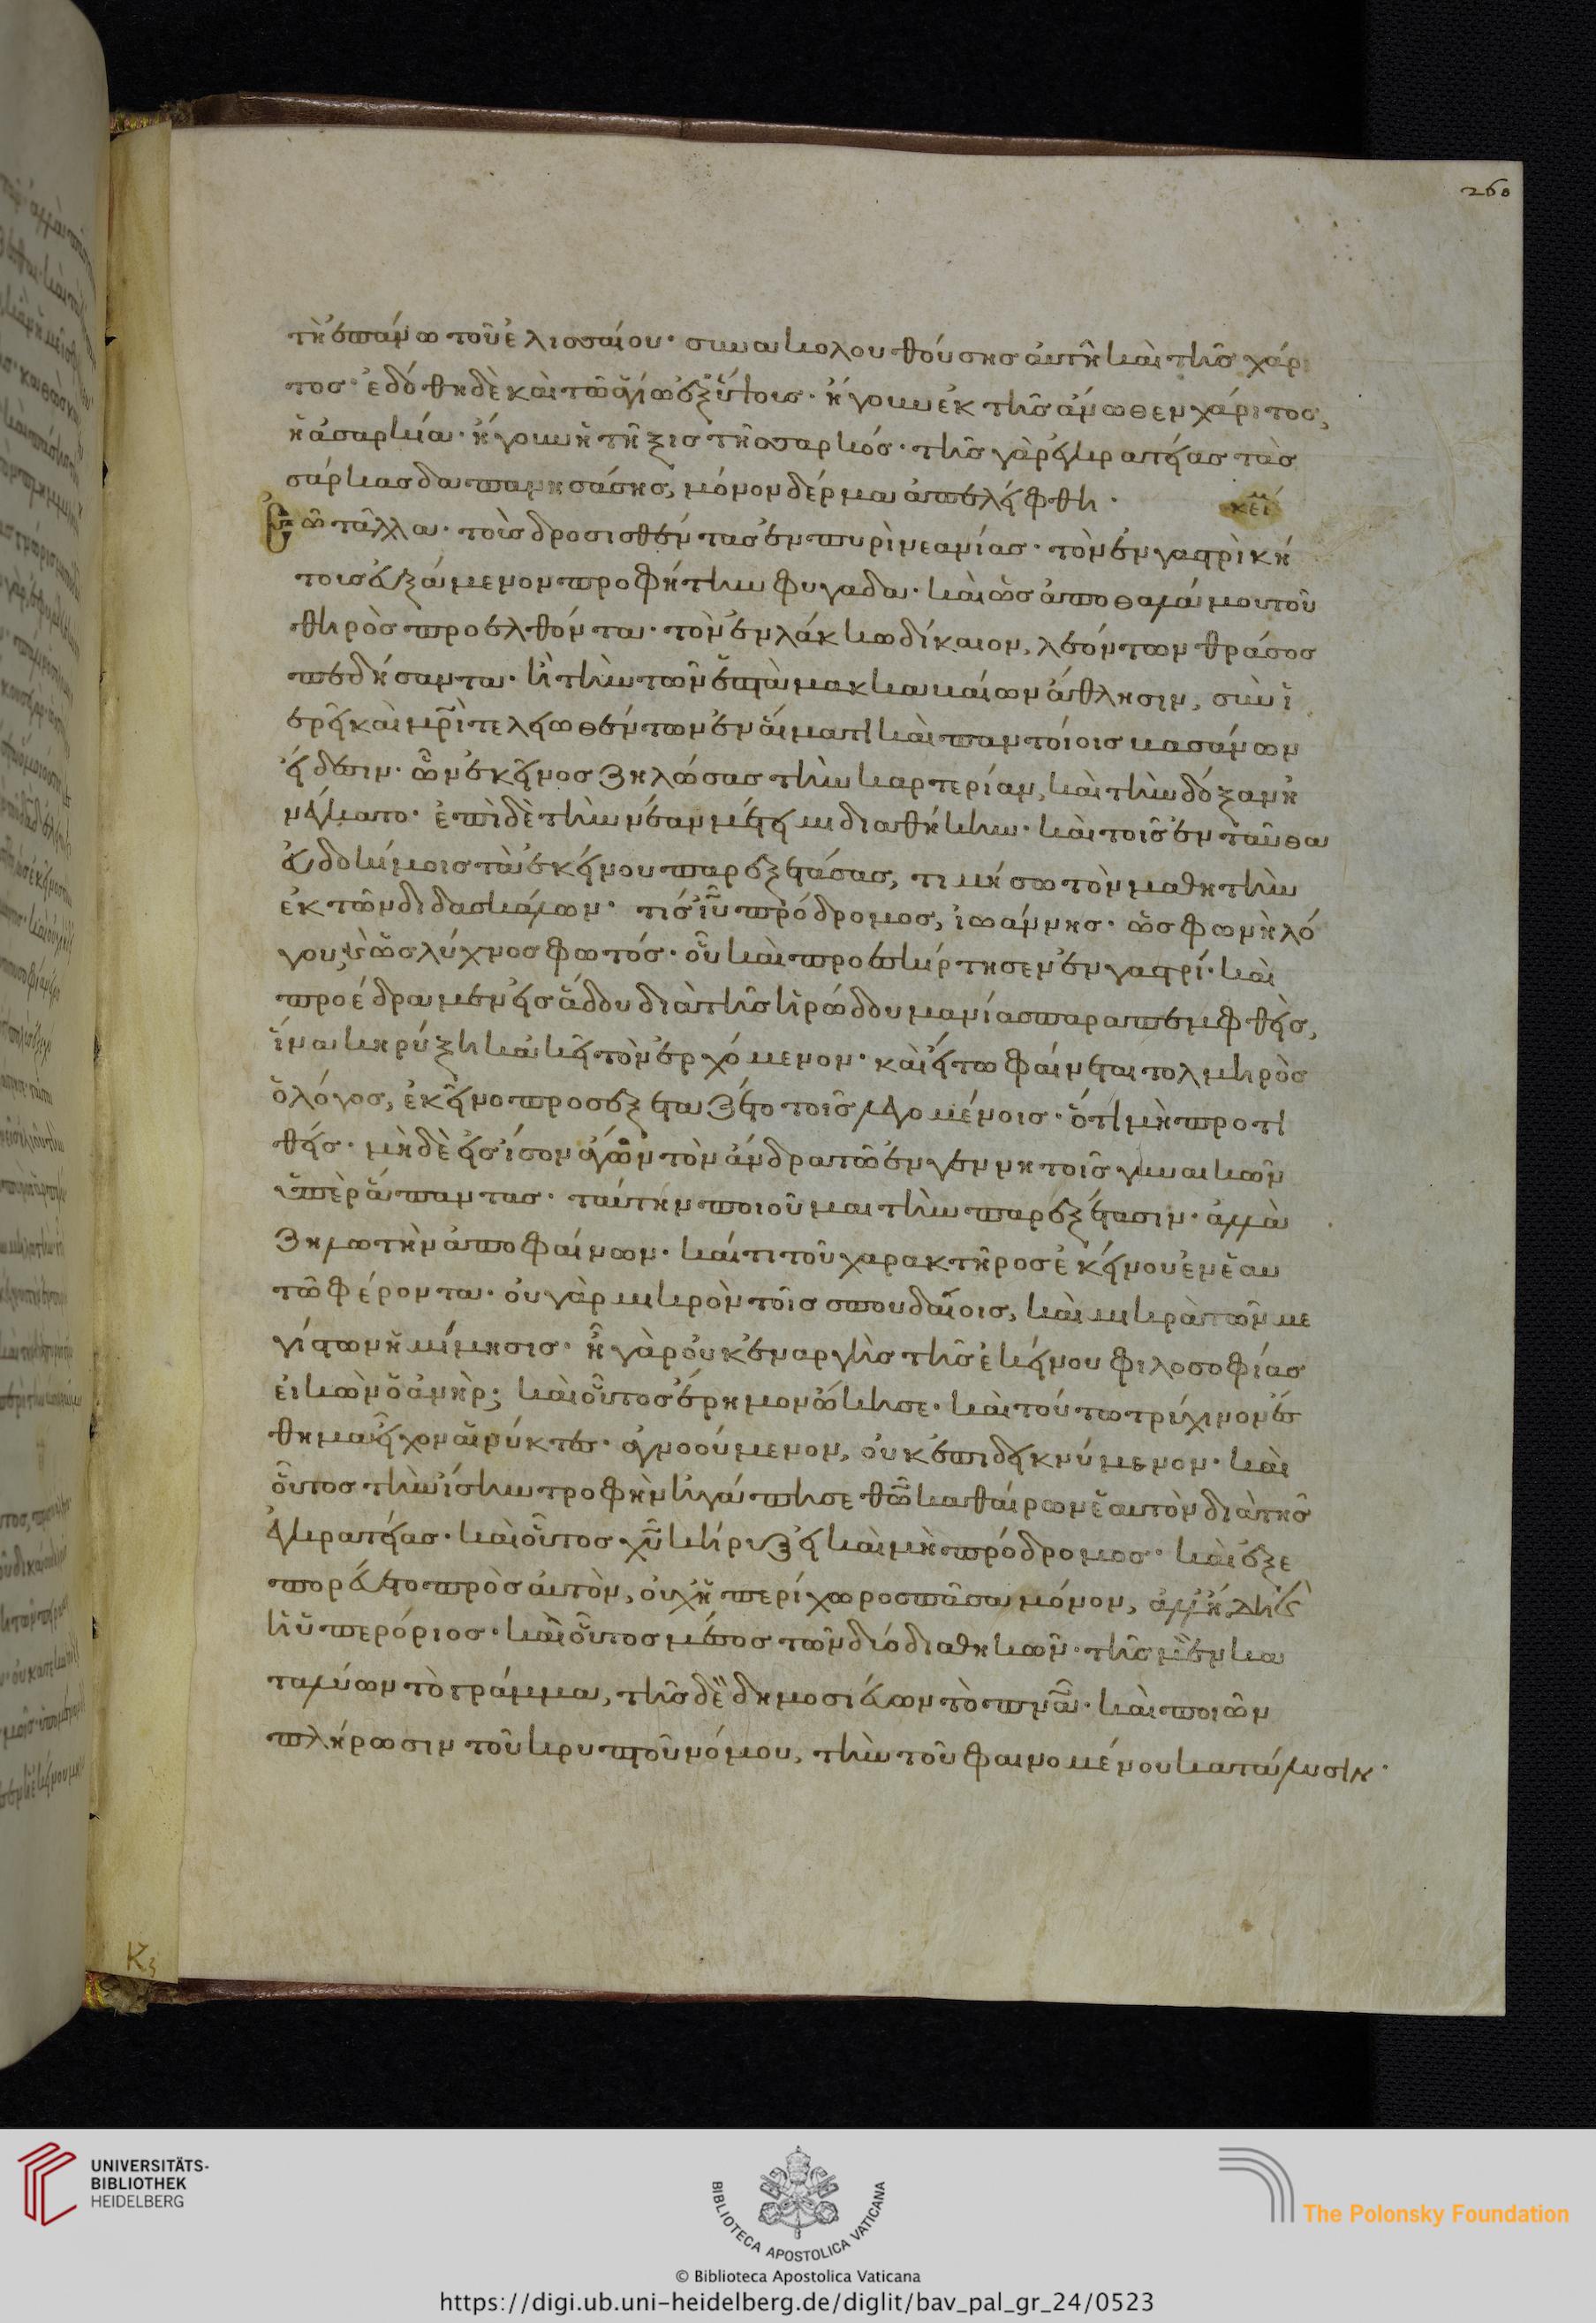 260
τῆ ἐπάνω τοῦ ἐλισσαίου· συνακολουθούσης αὐτῆ καὶ τῆς χάρι
τος· ἐδόθη δὲ καὶ τῶ ἁγίω ἐξ ὕψους· ἤγουν ἐκ τῆς ἄνωθεν χάριτος,
ἡ ἀσαρκία· ἤγουν ἡ τῆξις τῆς σαρκός· τῆς γὰρ ἐγκρατείας τὰς
σάρκας δαπανησάσης, μόνον δέρμα ἀπελείφθη· κεί
Ἐῶ τἄλλα· τοὺς δροσισθέντας ἐν πυρὶ νεανίας· τὸν ἐν γαστρὶ κή
τους εὐξάμενον προφήτην φυγάδα· καὶ ὡς ἀπο θαλάμου τοῦ
θηρὸς προελθόντα· τὸν ἐν λάκκω δίκαιον, λεόντων θράσος
πεδήσαντα· ἢ τὴν τῶν ἑπτὰ μακκαβαίων ἄθλησιν, σὺν ἱ
ερεῖ καὶ μρὶ τελειωθέντων ἐν αἵματι καὶ παντοίοις βασάνων
εἴδεσιν· ὧν ἐκεῖνος ζηλώσας τὴν καρτερίαν, καὶ τὴν δόξαν ἠ
νέγκατο· ἐπὶ δὲ τὴν νέαν μέτειμι διαθήκην· καὶ τοῖς ἐνταῦθα
εὐδοκίμοις τὰ ἐκείνου παρεξετάσας, τιμήσω τὸν μαθητὴν
ἐκ τῶν διδασκάλων· τίς ἰῦ πρόδρομος, ἰωάννης· ὡς φωνὴ λό
γου, κὲ ὡς λύχνος φωτός· οὗ καὶ προεσκίρτησεν ἐν γαστρί· καὶ
προέδραμεν εἰς ἅδου διὰ τῆς ἡρώδου μανίας παραπεμφθείς,
ἵνα κηρύξη κἀκεῖ τὸν ἐρχόμενον· καὶ εἴ τω φαίνεται τολμηρὸς
ὁ λόγος, ἐκεῖνο προσεξεταζέτο τοῖς λεγομένοις· ὅτι μὴ προτι
θείς· μηδὲ εἰς ἴσον ἄγων τὸν ἄνδρα τῶ ἐν γεννητοῖς γυναικῶν
ὑπὲρ ἅπαντας· ταύτην ποιοῦμαι τὴν παρεξέτασιν· ἀλλὰ
ζηλωτὴν ἀποφαίνων· καί τι τοῦ χαρακτῆρος ἐκείνου ἐν ἑαυ
τῶ φέροντα· οὐ γὰρ μικρὸν τοῖς σπουδαίοις, καὶ μικρὰ τῶν με
γίστων ἡ μίμησις· ἢ γὰρ οὐκ ἐναργὴς τῆς ἐκείνου φιλοσοφίας
εἰκὼν ὁ ἀνήρ; καὶ οὗτος ἔρημον ὤκησε· καὶ τούτω τρίχινον ἔσ
θημα εἶχον αἱ νύκτες· ἀγνοούμενον, οὐκ ἐπιδεικνύμενον· καὶ
οὗτος τὴν ἴσην τροφὴν ἠγάπησε θῶ καθαίρων ἑαυτὸν διὰ τῆς
ἐγκρατείας· καὶ οὗτος χῦ κήρυξ εἰ καὶ μὴ πρόδρομος· καὶ ἐξε
πορεύετο πρὸς αὐτὸν, οὐχ ἡ περίχωρος πᾶσα μόνον, ἀλλ' ἤδη κ
ἡ ὑπερόριος· καὶ οὗτος μέσος τῶν δύο διαθηκῶν· τῆς μὲν κα
ταλύων τὸ γράμμα, τῆς δὲ δημοσιεύων τὸ πνᾶ· καὶ ποιῶν
πλήρωσιν τοῦ κρυπτοῦ νόμου, τὴν τοῦ φαινομένου κατάλυσιν·
K3
UNIVERSITÄTS-
BIBLIOTHEK
HEIDELBERG
BIBLIOTECA APOSTOLICA VATICANA
The Polonsky Foundation
© Biblioteca Apostolica Vaticana
https://digi.ub.uni-heidelberg.de/diglit/bav_pal_gr_24/0523